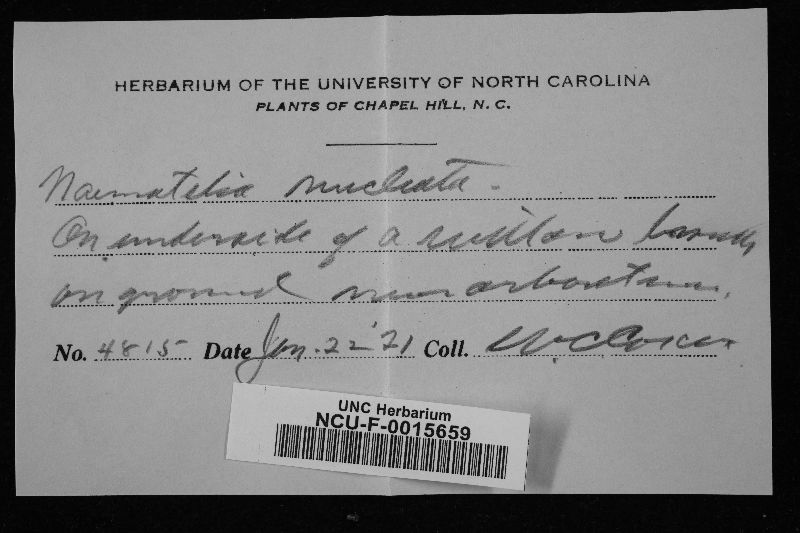 HERBARIUM OF THE UNIVERSITY OF NORTH CAROLINA
PLANTS OF CHAPEL HILL, N. C.
Naematelia nucleata.
On underside of a willow branch,
on ground near arboretum.
No. 4815 Date Jan. 22 '21 Coll. W C Coker
UNC Herbarium
NCU-F-0015659